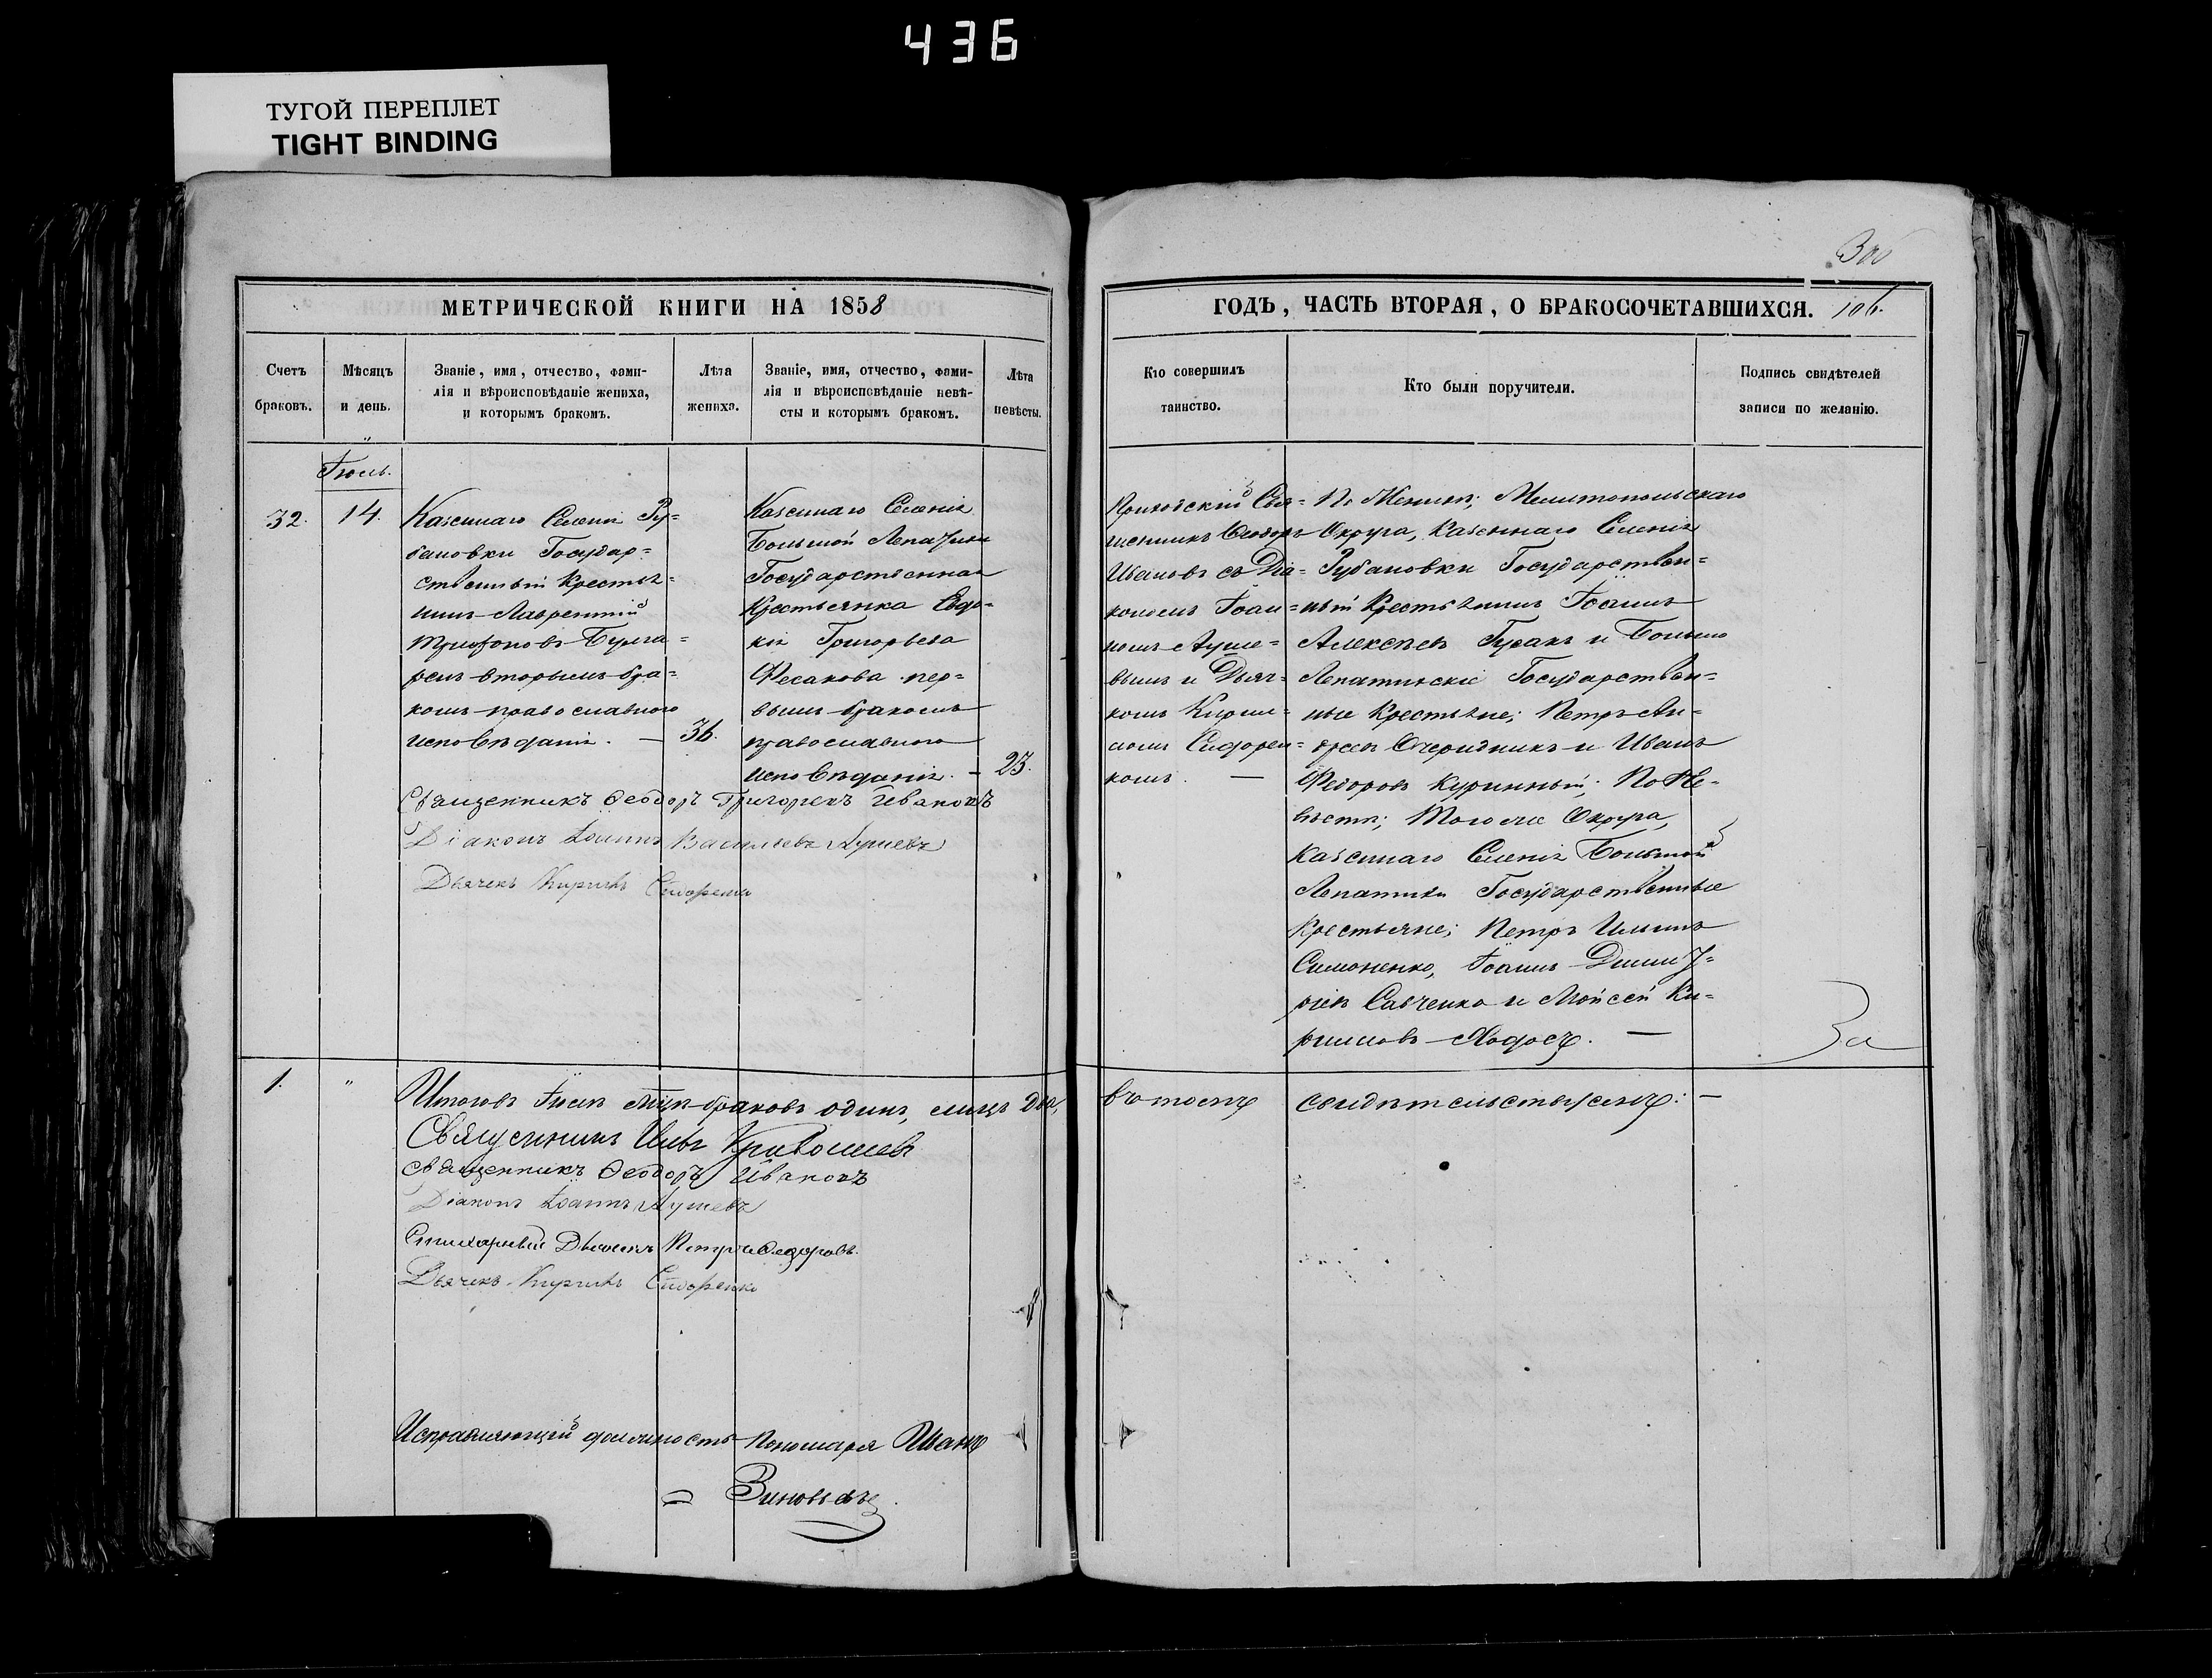 436
ТУГОЙ ПЕРЕПЛЕТ
TIGHT BINDING
МЕТРИЧЕСКОЙ КНИГИ НА 1858
Счетъ браковъ.
Мѣсяцъ и день.
Званіе, имя, отчество, фами-
лія и вѣроисповѣданіе жениха,
и которымъ бракомъ.
Лѣта жениха.
Званіе, имя, отчество, фами-
лія и вѣроисповѣданіе невѣ-
сты и которымъ бракомъ.
Лѣта невѣсты.
Іюль.
32.
14.
Казеннаго Селенія Ру-
бановки Государ-
ственный Крестья-
нинъ Лаврентій
Трифоновъ Булга-
ренъ вторымъ бра-
комъ православнаго
исповѣданія. —
36.
Казеннаго Селенія
Большой Лепатихи
Государственная
Крестьянка Евдо-
кія Григорьева
Фесакова пер-
вымъ бракомъ
православнаго
исповѣданія. —
23.
Священникъ Ѳеодоръ Григорьевъ Ивановъ
Діаконъ Іоаннъ Васильевъ Лушевъ
Дьячекъ Кириллъ Сидоренко
1.
"
Итого въ Іюлѣ мцѣ браковъ одинъ, лицъ два,
Священникъ
Священникъ Ѳеодоръ Ивановъ
Діаконъ Іоаннъ Лушевъ
Стихарный Дьячекъ Петръ Ѳедоровъ.
Дьячекъ Кириллъ Сидоренко
Исправляющій должность Пономаря Иванъ
Зиновьевъ.
300
ГОДЪ, ЧАСТЬ ВТОРАЯ, О БРАКОСОЧЕТАВШИХСЯ. 106.
Кто совершилъ
таинство.
Кто были поручители.
Подпись свидѣтелей
записи по желанію.
Приходскій Свя-
щенникъ Ѳеодоръ
Ивановъ съ Діа-
кономъ Іоан-
номъ Луше-
вымъ и Дьяч-
комъ Кирил-
ломъ Сидорен-
комъ. —
По Женихѣ; Мелитопольскаго
Округа, Казеннаго Селенія
Рубановки Государствен-
ный Крестьянинъ Іоаннъ
Алексѣевъ Гусакъ и Больше
Лепатихскіе Государствен-
ные Крестьяне; Петръ Ан-
дреевъ Очередникъ и Иванъ
Федоровъ Куринный; По Не-
вѣстѣ; Того же Округа,
Казеннаго Селенія Большой
Лепатихи Государственные
Крестьяне; Петръ Ильинъ
Симоненко, Іоаннъ Дмит-
ріевъ Савченко и Мойсей Ки-
рилловъ Ходосъ. —
въ томъ свидѣтельствуемъ: —